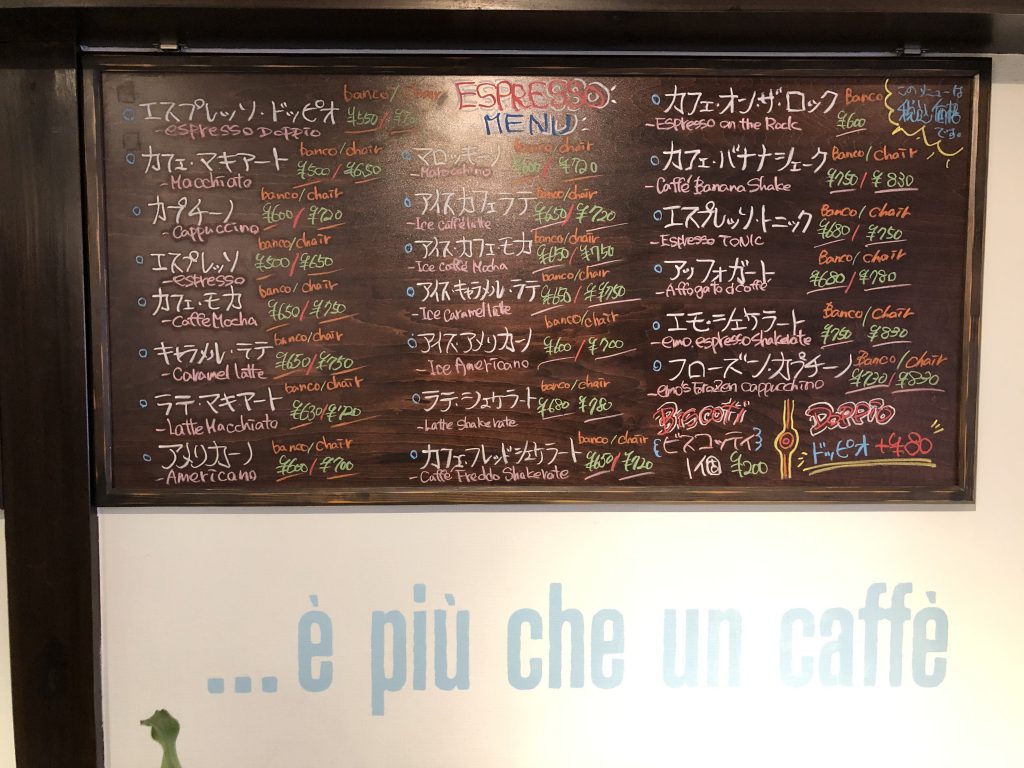 ESPRESSO
MENU
エスプレッソ・ドッピオ banco/chair
-espresso Doppio ¥550/
カフェ・マキアート banco/chair
-Macchiato ¥500/¥650
カプチーノ banco/chair
-Cappuccino ¥600/¥720
エスプレッソ banco/chair
-espresso ¥500/¥650
カフェ・モカ banco/chair
-Caffe Mocha ¥650/¥750
キャラメル・ラテ banco/chair
-Caramel Latte ¥650/¥750
ラテ・マキアート banco/chair
-Latte Macchiato ¥630/¥720
アメリカーノ banco/chair
-Americano ¥600/¥700
マロッキーノ banco/chair
-Marocchino ¥600/¥720
アイスカフェラテ banco/chair
-Ice caffé latte ¥650/¥720
アイス・カフェ・モカ banco/chair
-Ice Caffé Mocha ¥650/¥750
アイスキャラメル・ラテ banco/chair
-Ice Caramel late ¥650/¥750
アイス・アメリカーノ banco/chair
-Ice Americano ¥600/¥700
ラテ・シェケラート banco/chair
-Latte Shakerate ¥680/¥780
カフェ・フレッド シェケラート banco/chair
-Caffé Freddo Shakerate ¥650/¥720
カフェ・オン・ザ・ロック Banco
-Espresso on the Rock ¥600
カフェ・バナナシェーク Banco/chair
-Caffé Banana Shake ¥750/¥830
エスプレッソ・トニック Banco/chair
-Espresso TONIC ¥680/¥750
アッフォガート Banco/chair
-Affogato d caffé ¥680/¥780
エモ・シェケラート Banco/chair
-emo espresso shakerate ¥750/¥830
フローズン・カプチーノ Banco/chair
-emo's frozen cappucchino ¥730/¥830
Biscotti
{ビスコッティ}
1個 ¥200
DOPPIO
ドッピオ +¥80
このメニューは
税込価格
です。
...è più che un caffè